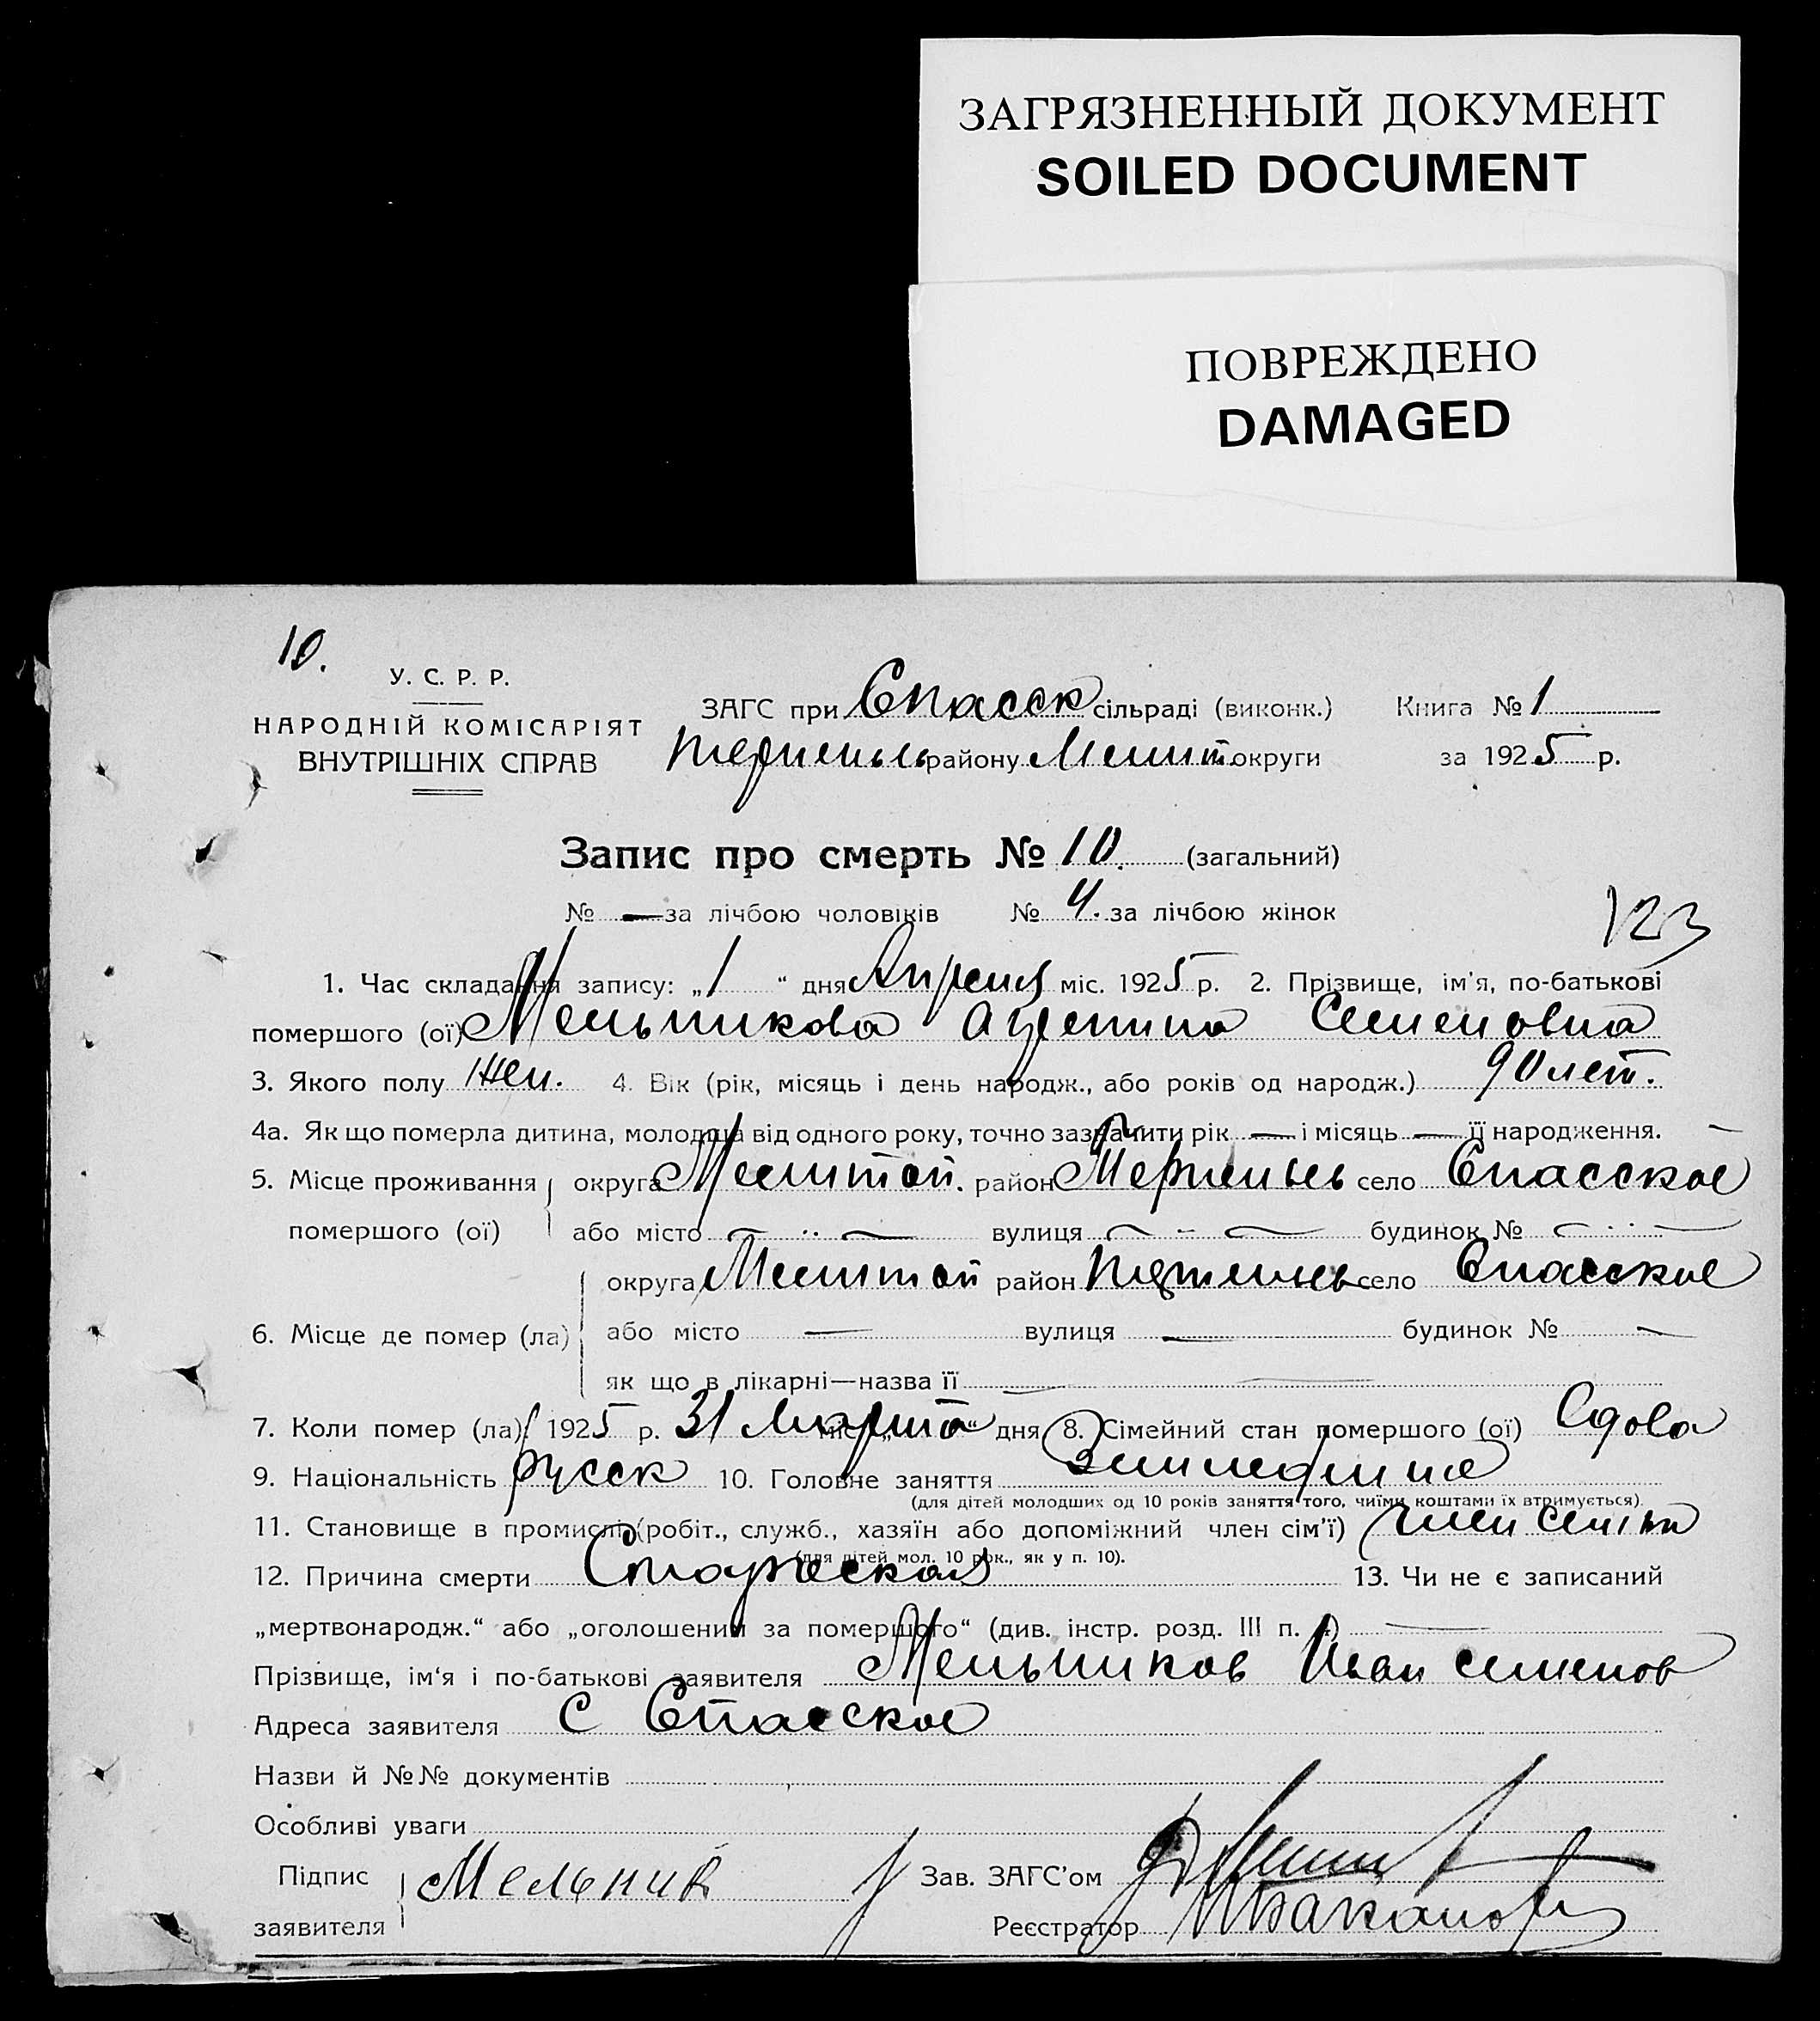 ЗАГРЯЗНЕННЫЙ ДОКУМЕНТ
SOILED DOCUMENT
ПОВРЕЖДЕНО
DAMAGED
10.
У. С. Р. Р.
НАРОДНІЙ КОМІСАРІЯТ
ВНУТРІШНІХ СПРАВ
ЗАГС при Спасск сільраді (виконк.) Книга № 1
району Мелит. округи за 1925 р.
Запис про смерть № 10. (загальний)
№ — за лічбою чоловіків № 4. за лічбою жінок
123
1. Час складання запису: „1“ дня Апреля міс. 1925 р. 2. Прізвище, ім'я, по-батькові
помершого (ої) Мельникова Семеновна
3. Якого полу жен. 4. Вік (рік, місяць і день народж., або років од народж.) 90 лет.
4а. Як що померла дитина, молодша від одного року, точно зазначити рік — і місяць — її народження. —
5. Місце проживання округа Мелитоп. район село Спасское
помершого (ої) або місто вулиця будинок №
округа Мелитоп район село Спасское
6. Місце де помер (ла) або місто — вулиця — будинок № —
як що в лікарні—назва її —
7. Коли помер (ла): 1925 р. 31 Марта міс. „ “ дня 8. Сімейний стан помершого (ої) Вдова
9. Національність русск 10. Головне заняття Земледелие
(для дітей молодших од 10 років заняття того, чиїми коштами їх втримується).
11. Становище в промислі (робіт., служб., хазяїн або допоміжний член сім'ї) член семьи
(для дітей мол. 10 рок., як у п. 10).
12. Причина смерти Старческая 13. Чи не є записаний
„мертвонародж.“ або „оголошеним за померщого“ (див. інстр. розд. III п. ) —
Прізвище, ім'я і по-батькові заявителя Мельников Иван Семенов
Адреса заявителя С Спасское
Назви й №№ документів
Особливі уваги
Підпис заявителя Мельник Зав. ЗАГС'ом
Реєстратор